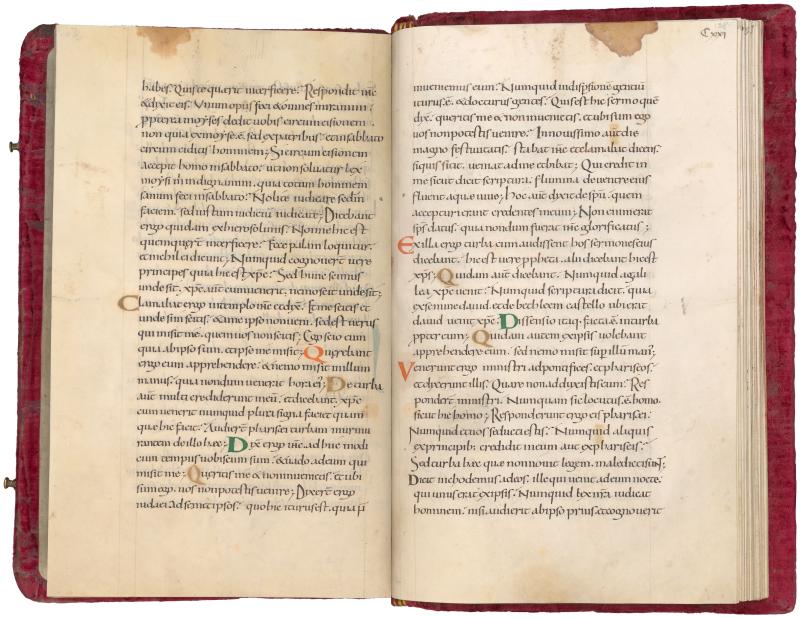 habes. Quis te querit interficere; Respondit ihc̄
& dyxit eis. Unum opus feci & omnes miramini;
ppterea moyses dedit uobis circumcisionem
non quia ex moyse ē. sed ex patribus. et in sabbato
circumciditis hominem; Si circumcisionem
accepit homo in sabbato. ut non soluatur lex
moysi m̄ indignamini. quia totum hominem
sanum feci in sabbato; Nolite iudicare sedm̄
faciem. sed iustum iudicium iudicate; Dicebant
ergo quidam ex hierosolimis. Nonne hic est
quem querūt interficere; Ecce palam loquitur.
et nichil ei dicunt; Numquid cognouerūt uere
principes quia hic est xp̄c; Sed hunc scimus
unde sit. xp̄c aūt cum uenerit. nemo scit unde sit;
Clamabat ergo in templo ihc̄ et dyx̄. Et me scitis et
unde sim scitis. & a me ipso non ueni. sed est uerus
qui misit me. quem uos non scitis; Ego scio eum
quia ab ipso sum. et ipse me misit; Querebant
ergo eum apprehendere. & nemo misit in illum
manus. quia nondum uenerat hora eius; De turba
aūt multi crediderunt in eū. et dicebant. xp̄c
cum uenerit numquid plura signa faciet quam
que hic facit; Audierūt pharisei turbam murmu
rantem de illo hec; Dyx̄ ergo ihc̄. adhuc modi
cum tempus uobiscum sum. & uado ad eum qui
misit me; Queritis me & non inuenietis. et ubi
sum ego. uos non potestis uenire; Dixerūt ergo
iudaei ad semet ipsos. quo hic iturus est. quia n̄
Cxxi
inueniemus eum; Numquid in dispsione gentiū
iturus ē. & docturus gentes; Quis est hic sermo quē
dyx̄. queritis me & non inuenietis. et ubi sum ego
uos non potestis uenire; In nouissimo aūt die
magno festiuitatis. stabat ihc̄ et clamabat dicens.
siquis sitit. ueniat ad me et bibat; Qui credit in
me sicut dicit scriptura. flumina de uentre eius
fluent aque uiue; hoc aūt dyxit de spū. quem
accepturi erant credentes in eum; Non enim erat
sp̄s datus. quia nondum fuerat ihc̄ glorificatus;
Ex illa ergo turba cum audissent hos sermones eius
dicebant. hic est uere ppheta. alii dicebant hic est
xp̄s; Quidam aūt dicebant. Numquid a gali
lea xp̄c uenit; Numquid scriptura dicit. quia
ex semine dauid. et de bethleem castello ubi erat
dauid uenit xp̄c; Dissensio itaq; facta ē. in turba
ppter eum; Quidam autem ex ipsis uolebant
apprehendere eum. sed nemo misit sup illum man;
Venerunt ergo ministri ad pontifices. et phariseos.
et dyxerunt illis. Quare non adduxistis eum; Res
ponderūt ministri. Numquam sic locutus ē. homo.
sicut hic homo; Responderunt ergo eis pharisei.
Numquid et uos seducti estis; Numquid aliquis
ex principib; credidit in eum aut ex phariseis;
Sed turba hec que non nouit legem. maledicti sunt;
Dicit nichodemus. ad eos. ille qui uenit ad eum nocte.
qui unus erat ex ipsis. Numquid lex nr̄a iudicat
hominem. nisi audierit ab ipso prius. et cognouerit